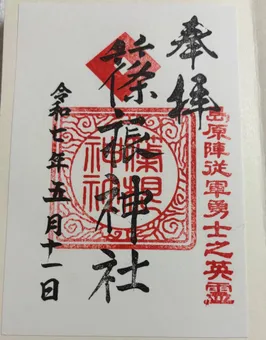 奉拝
島原陣従軍勇士之英霊
神社
令和七年五月十一日